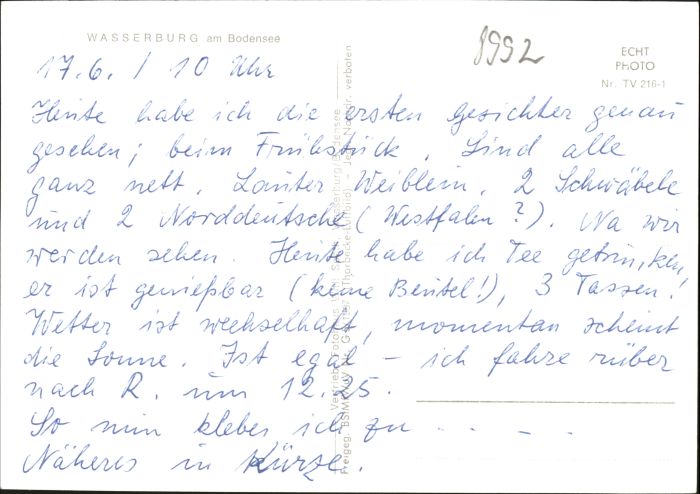 WASSERBURG am Bodensee
8992
ECHT
PHOTO
Nr. TV 216-1
17.6. / 10 Uhr
Heute habe ich die ersten Gesichter genau
gesehen; beim Frühstück. Sind alle
ganz nett. Lauter Weiblein. 2 Schwäbele
und 2 Norddeutsche (Westfalen?). Na wir
werden sehen. Heute habe ich Tee getrunken,
er ist genießbar (keine Beutel!), 3 Tassen!
Wetter ist wechselhaft, momentan scheint
die Sonne. Ist egal – ich fahre rüber
nach R. um 12.25.
So nun klebe ich zu - - - -
Näheres in Kürze.
Nachdr. verboten